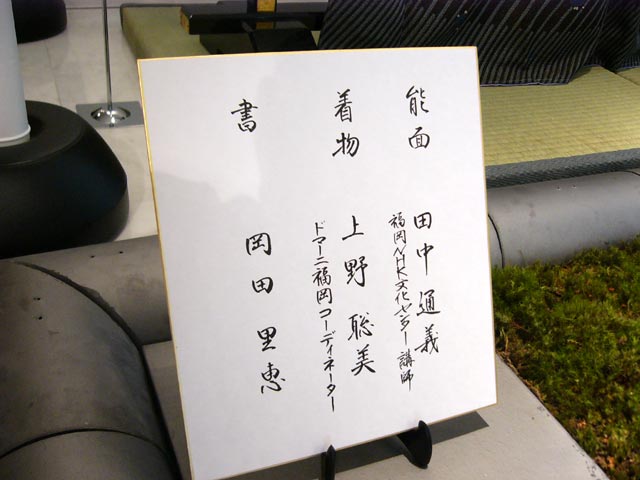 能面 田中通義
福岡NHK文化センター講師
着物 上野聡美
ドマーニ福岡コーディネーター
書 岡田里恵